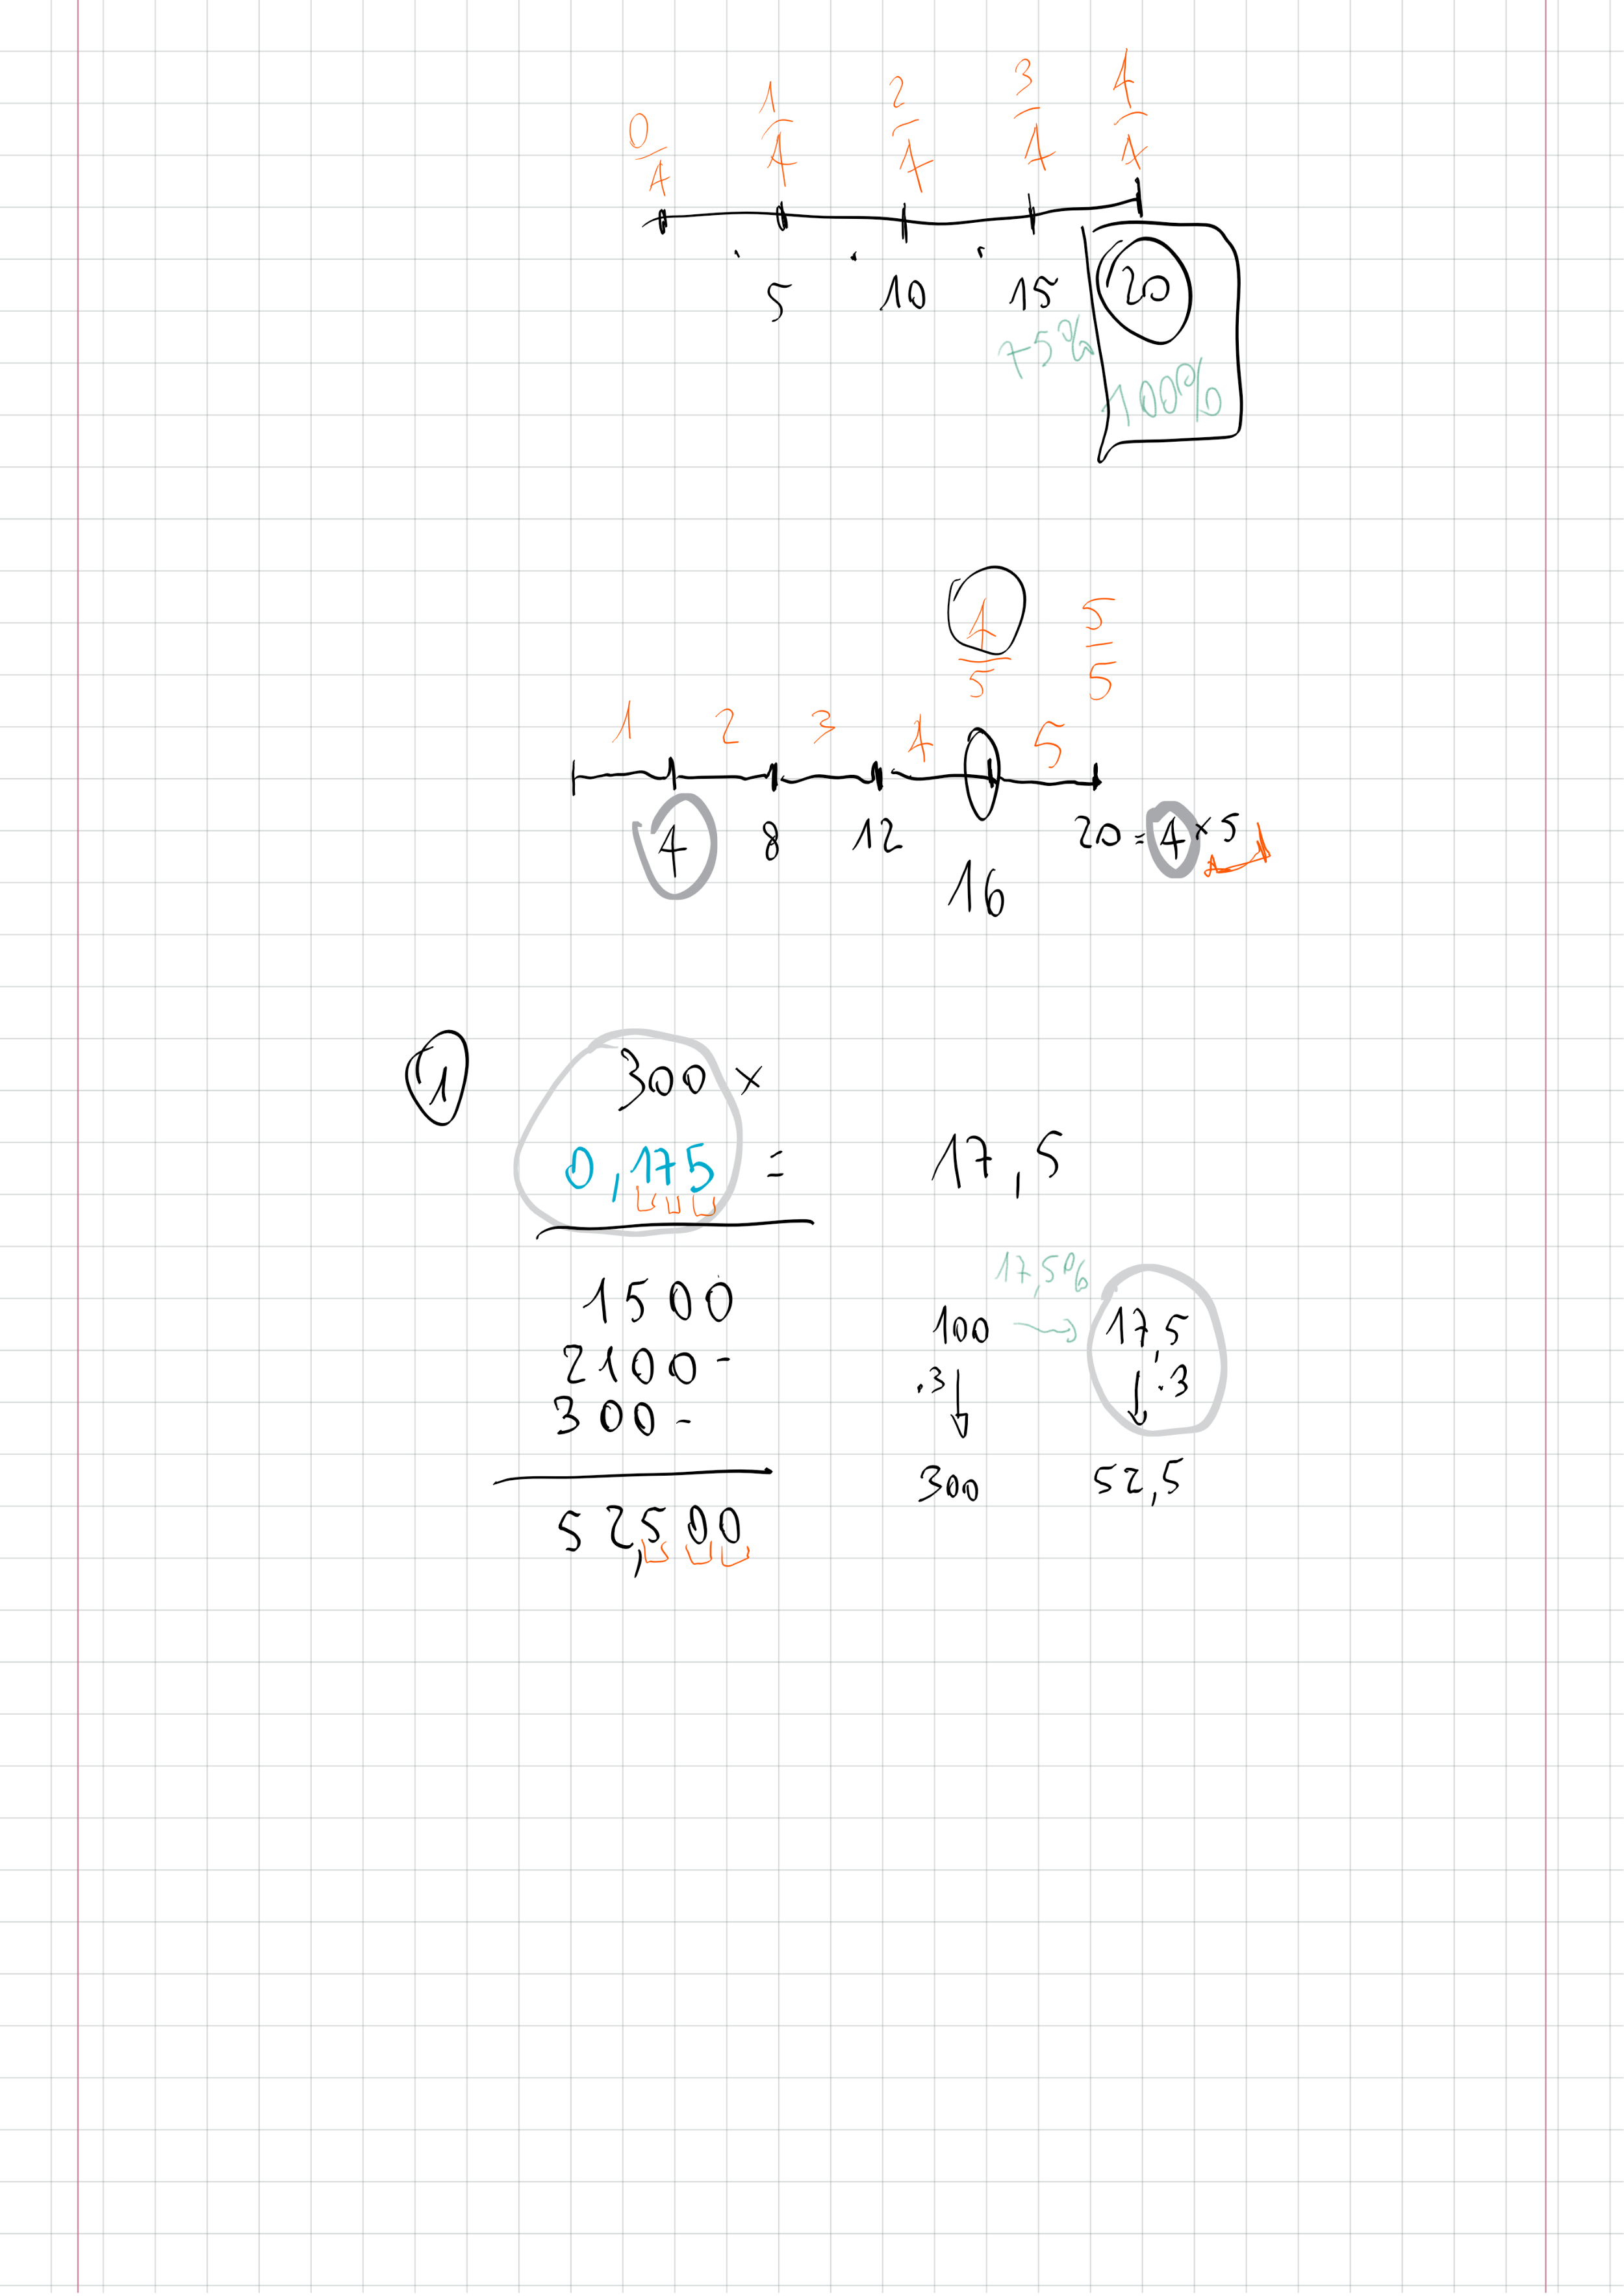 0/4 1/4 2/4 3/4 4/4
5 10 15 20
+5% 100%
4/5 5/5
1 2 3 4 5
4 8 12 16 20 = 4 × 5
1 300 ×
0,175 = 17,5
17,5%
1500
100 → 17,5
2100-
.3 ↓ ↓ .3
300-
300 52,5
52,500